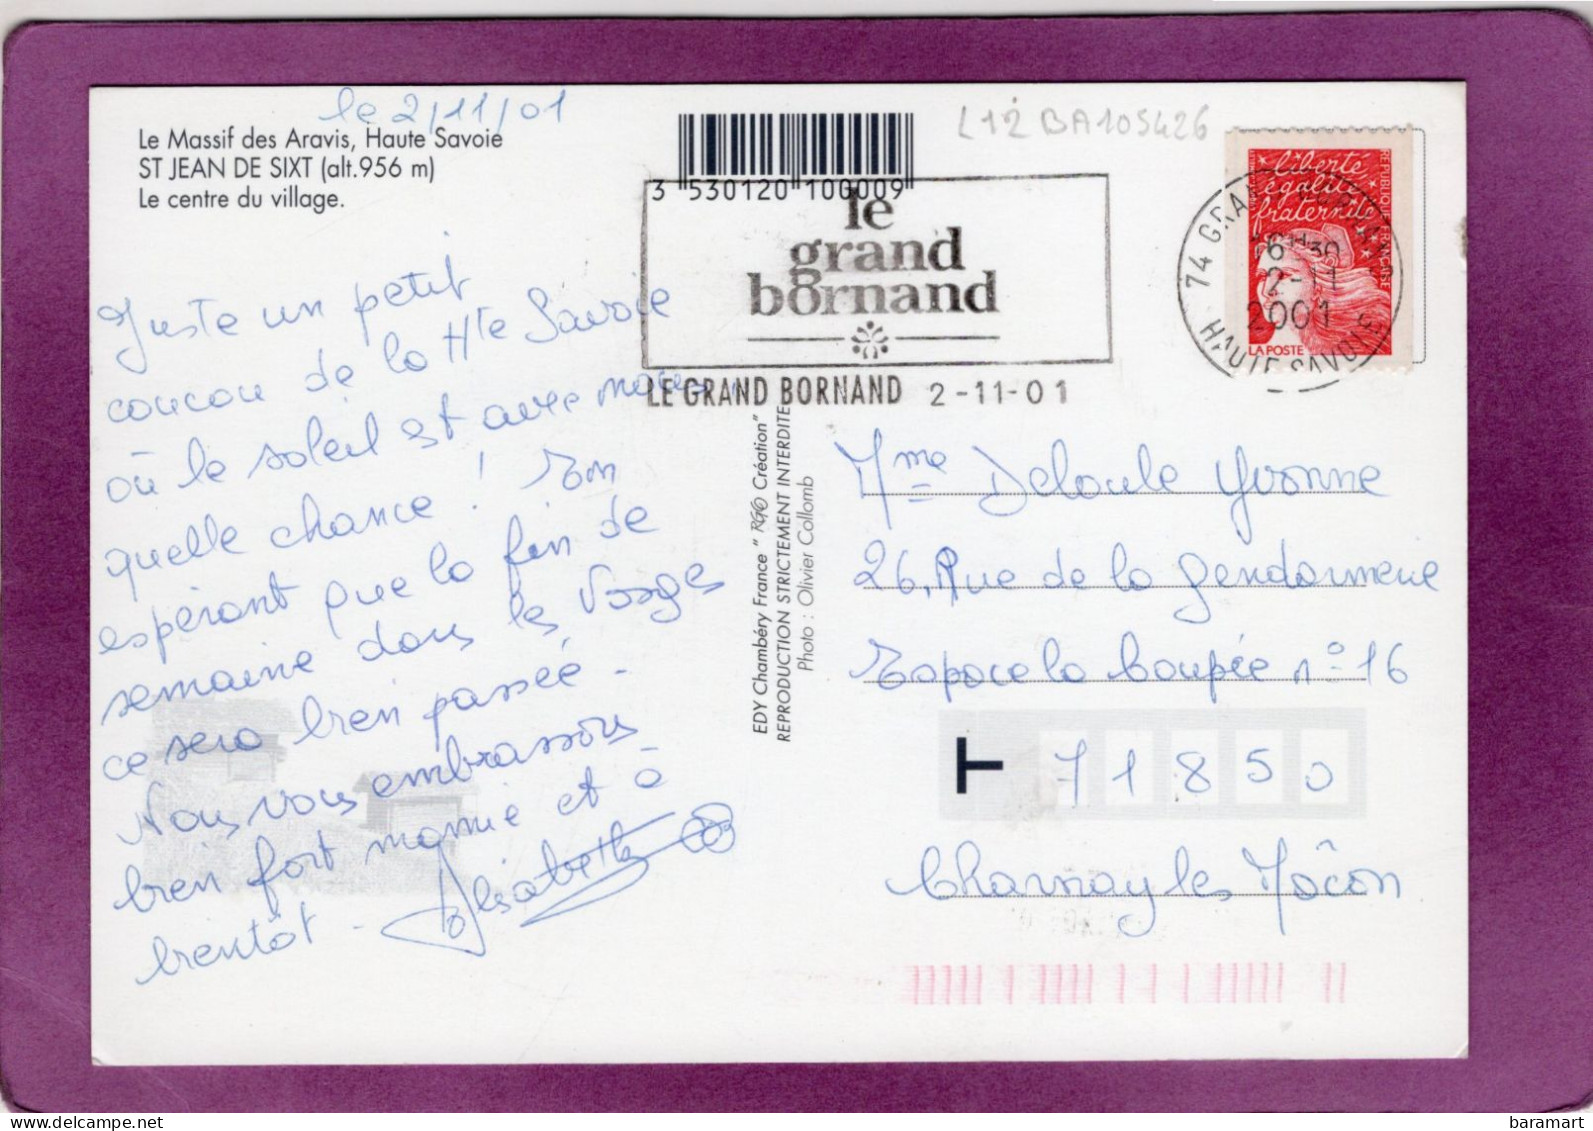 le 2/11/01
Le Massif des Aravis, Haute Savoie
ST JEAN DE SIXT (alt.956 m)
Le centre du village.
Juste un petit
coucou de la Hte Savoie
où le soleil est avec nous,
quelle chance ! En
espérant que la fin de
semaine dans les Vosges
ce sera bien passée -
Nous vous embrassons
bien fort mamie et à
bientôt -
3 530120 100009
L12 BA105426
le
grand
bornand
LE GRAND BORNAND 2-11-01
74 GRAND BORNAND
16H30
2-11
2001
HAUTE SAVOIE
liberté
égalité
fraternité
REPUBLIQUE FRANÇAISE
LA POSTE
EDY Chambéry France " RGO Création"
REPRODUCTION STRICTEMENT INTERDITE
Photo : Olivier Collomb
Mme Deloule Yvonne
26, Rue de la Gendarmerie
Espace la Coupée n° 16
T 71850
Charnay les Mâcon
baramart